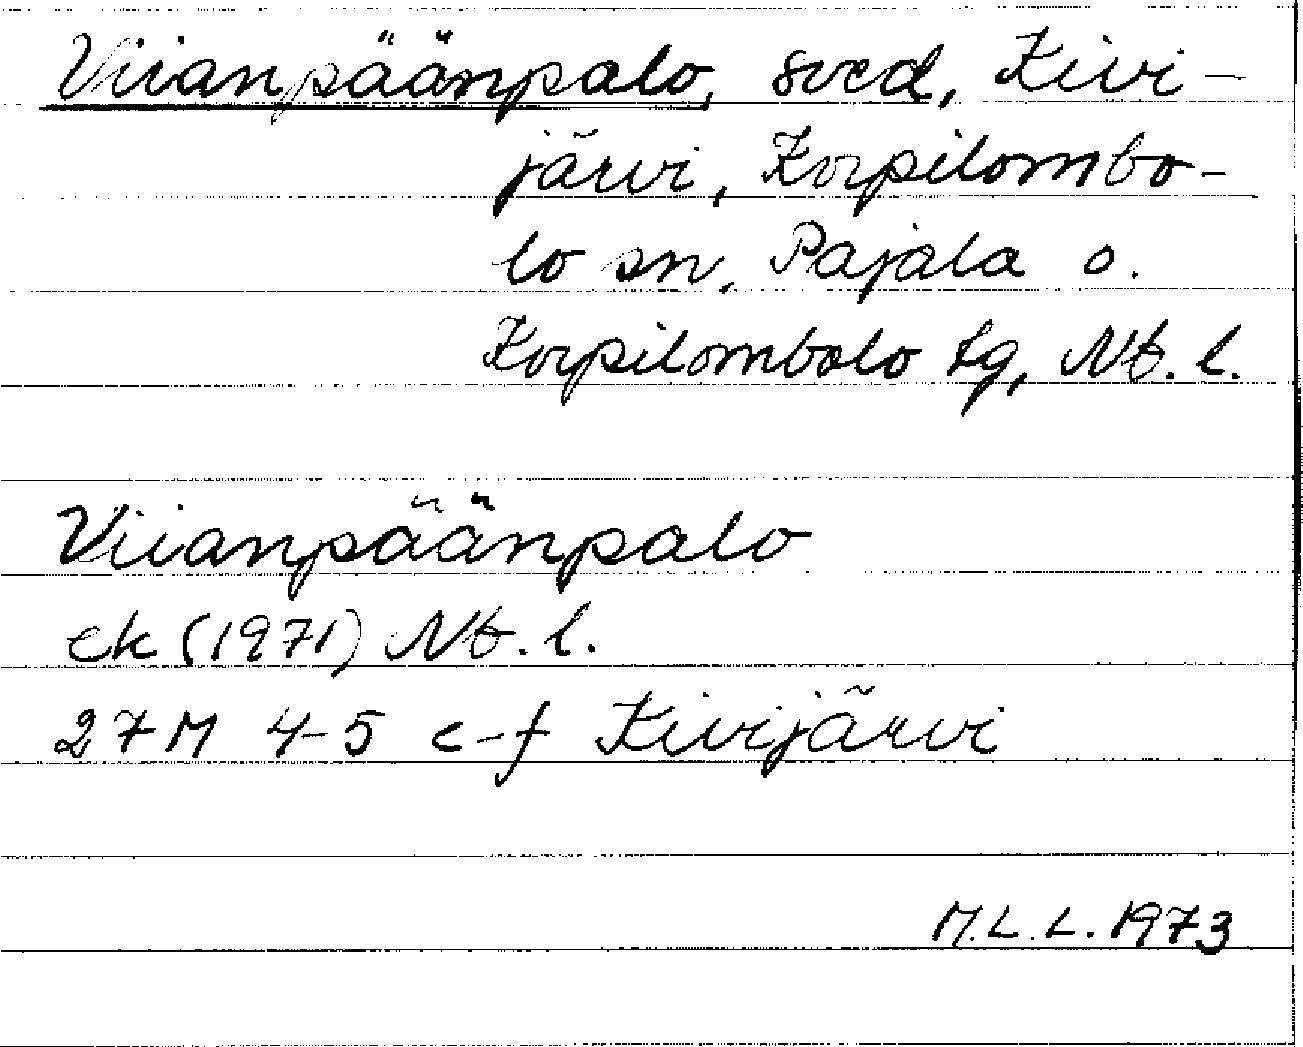 Viianpäänpalo, sved, Kivi-
järvi, Korpilombo-
lo sn, Pajala o.
Korpilombolo tg, Nb. l.
Viianpäänpalo
ek (1971) Nb. l.
27 M 4-5 c-f Kivijärvi
M.L.L. 1973